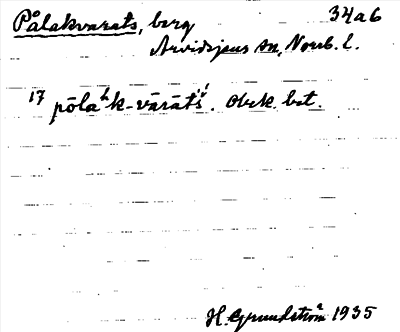 Pålakvarats, berg 34a6
Arvidsjaur sn, Norrb. l.
17 pōlaʰk-vārāt́s̀́. Obek. bet.
H. Grundström 1935